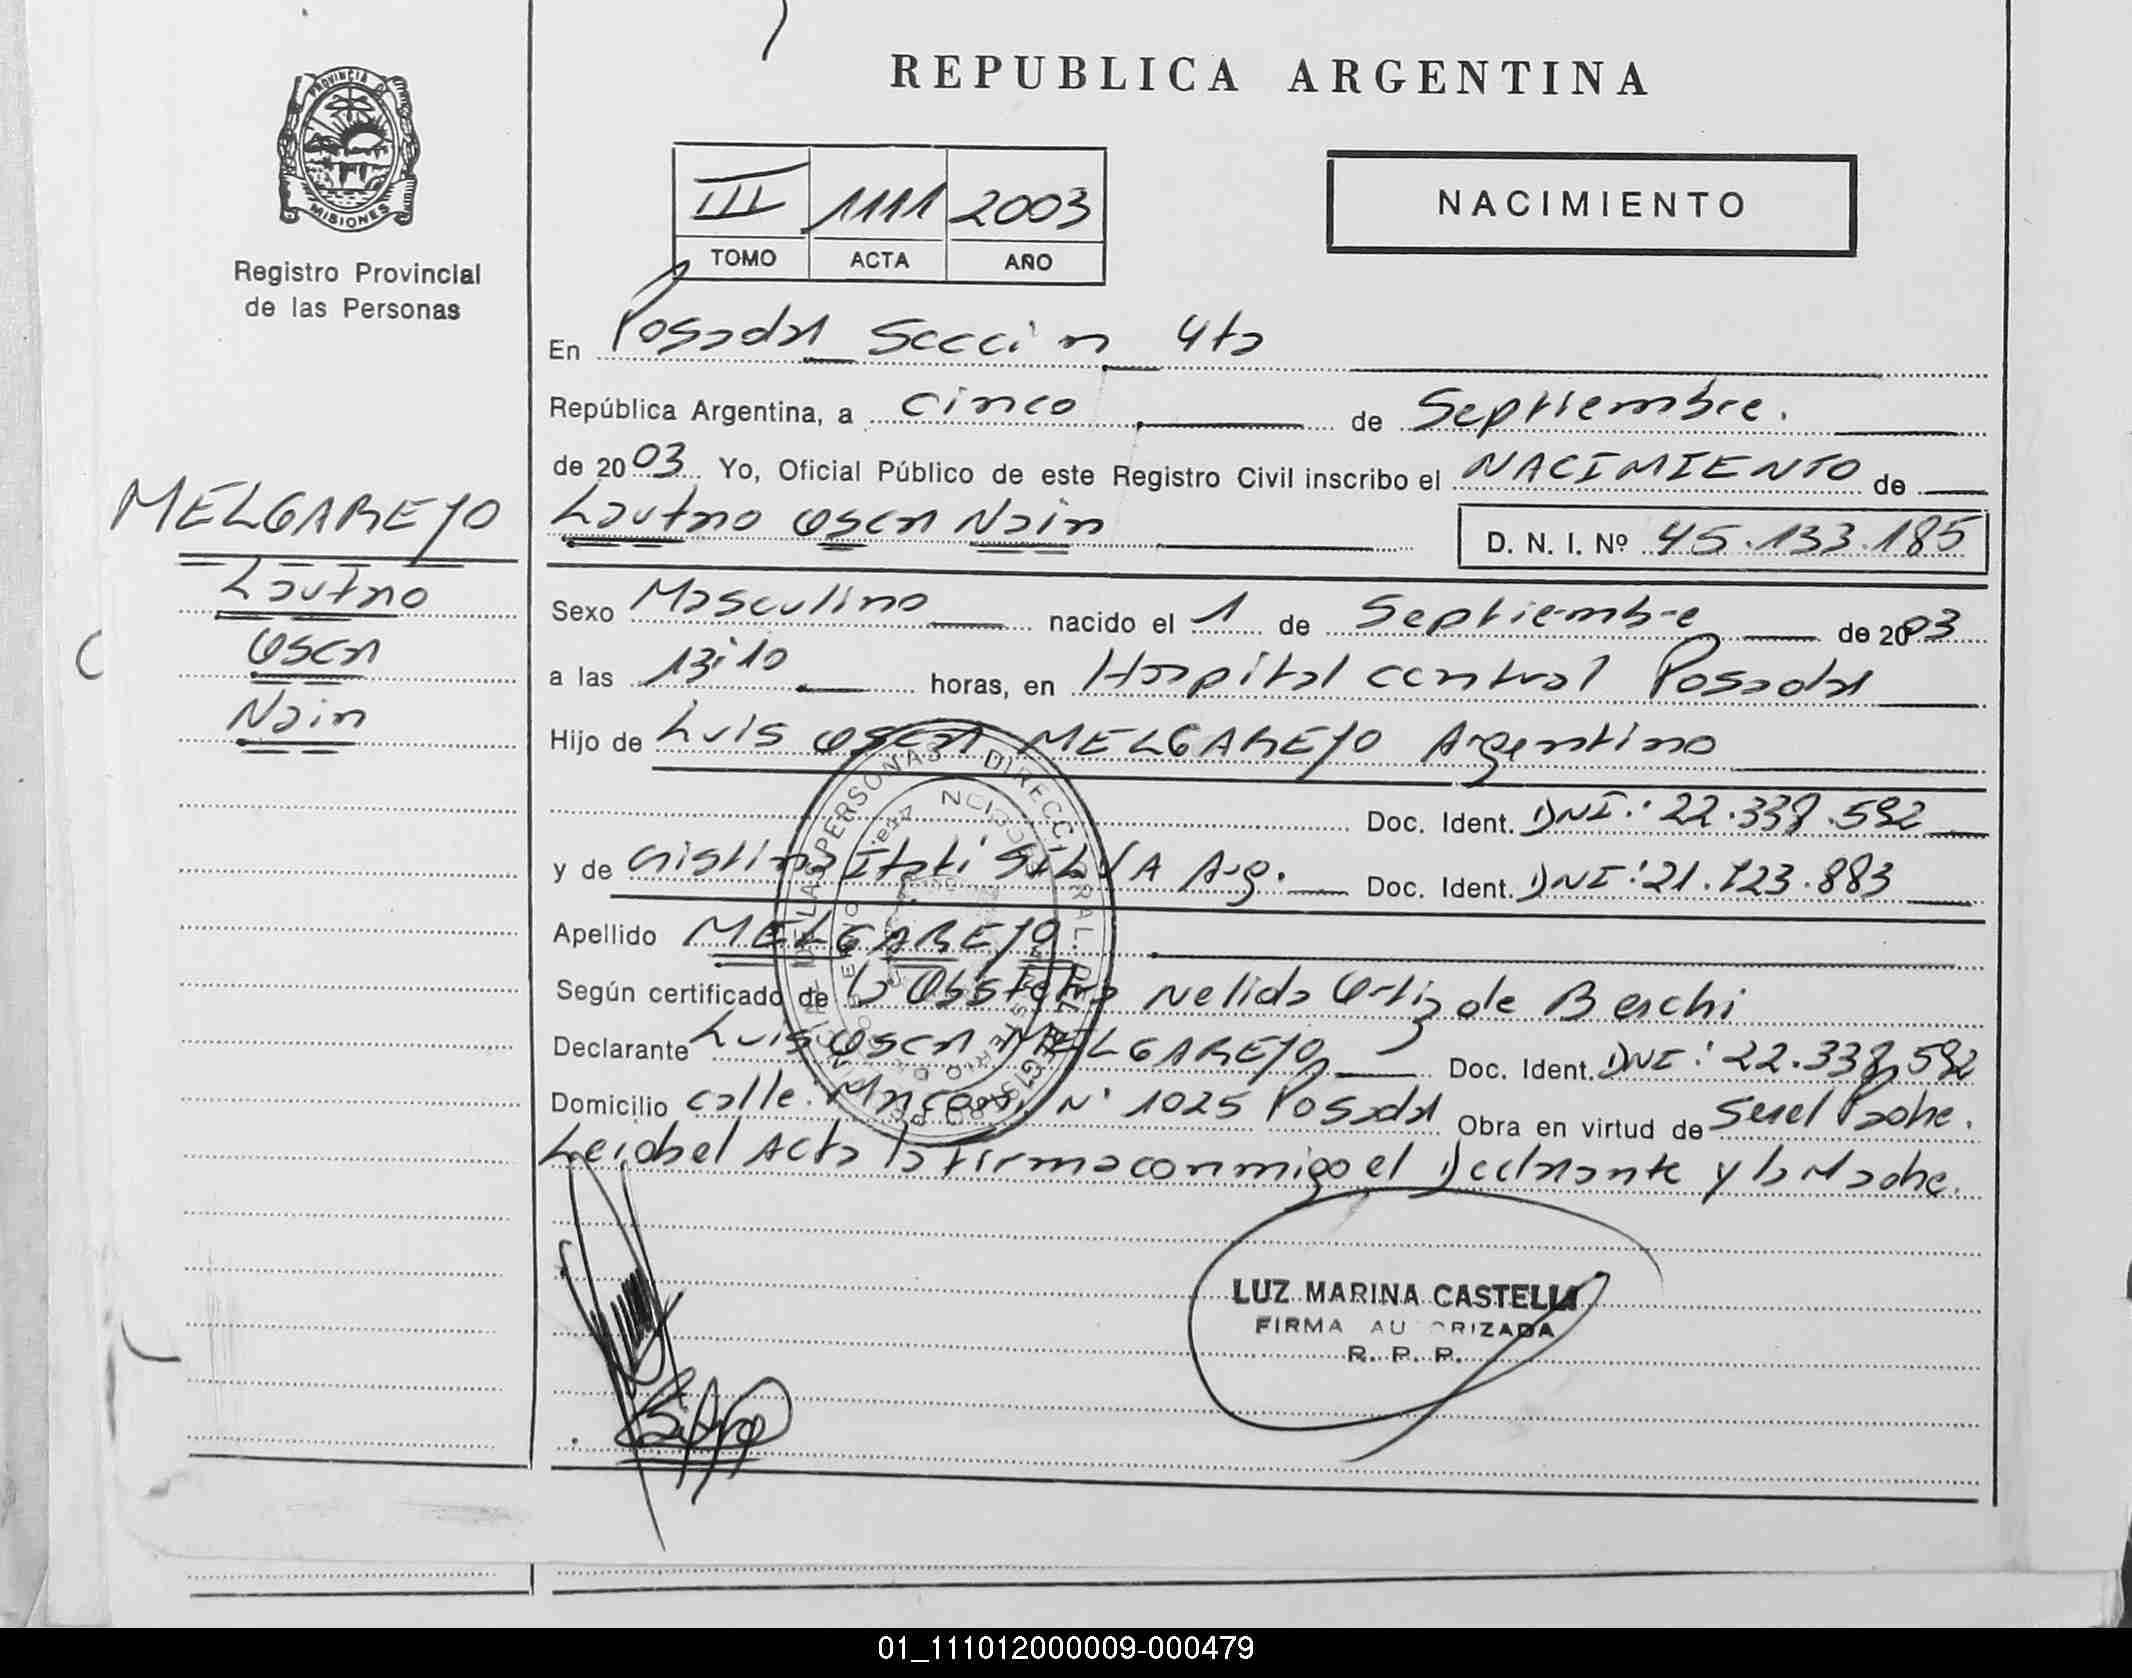 REPUBLICA ARGENTINA
PROVINCIA DE MISIONES
Registro Provincial
de las Personas
III 1111 2003
TOMO ACTA AÑO
NACIMIENTO
En Posadas Sección 4ta
República Argentina, a cinco de Septiembre.
de 2003 Yo, Oficial Público de este Registro Civil inscribo el NACIMIENTO de
MELGAREJO
Lautaro
Oscar
Nain
Lautaro Oscar Nain D. N. I. Nº 45.133.185
Sexo Masculino nacido el 1 de Septiembre de 2003
a las 13:10 horas, en Hospital central Posadas
Hijo de Luis Oscar MELGAREJO Argentino
Doc. Ident. DNI: 22.338.592
y de Cristina Itati SILVA Arg. Doc. Ident. DNI: 21.723.883
Apellido MELGAREJO
Según certificado de la Obstetra Nelida Ortiz de Berchi
Declarante Luis Oscar MELGAREJO Doc. Ident. DNI: 22.338.592
Domicilio calle: Nº 1025 Posadas Obra en virtud de Ser el Padre.
Leida el Acta la firma conmigo el Declarante y la Madre.
LUZ MARINA CASTELLI
FIRMA AUTORIZADA
R. P. P.
01_111012000009-000479